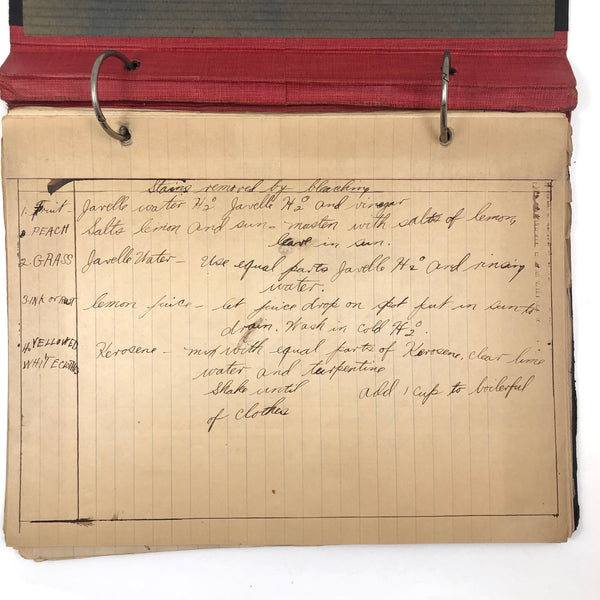 Stains removed by bleaching
1. Fruit Javelle water H2O Javelle H2O and vinegar
PEACH Salts lemon and sun - moisten with salts of lemon,
leave in sun.
2. GRASS Javelle Water - Use equal parts Javelle H2O and rinsing
water.
3. INK or RUST lemon juice - let juice drop on spot put in sun to
drain. Wash in cold H2O.
4. YELLOWED Kerosene - mix with equal parts of Kerosene, clear lime
WHITE CLOTHES water and turpentine
Shake until add 1 cup to boilerful
of clothes